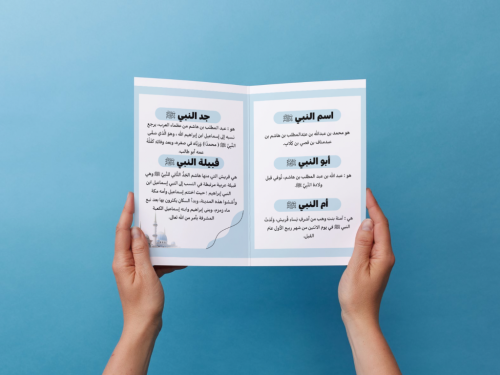 اسم النبي ﷺ
هو محمد بن عبدالله بن عبدالمطلب بن هاشم بن
عبدمناف بن قصي بن كلاب.
أبو النبي ﷺ
هو : عبد الله بن عبد المطلب بن هاشم، تُوفي قبل
ولادة النَّبيّ ﷺ
أم النبي ﷺ
هي : آمنة بنت وهب من أشرف نساء قُريش، وَلَدت
النبي ﷺ في يوم الاثنين من شهر ربيع الأول عام
الفيل.
جد النبي ﷺ
هو : عبد المطلب بن هاشم من عظماء العرب، يرجع
نسبه إلى إسماعيل ابن إبراهيم الله ، وهو الَّذي سمَّى
النَّبيّ ﷺ ( محمدًا) وَربَّاه في صغره، وبعد وفاته كَفَلَهُ
عمه أبو طالب
قبيلة النبي ﷺ
هي قريش التي منها هاشم الجَدُّ الثَّاني للنَّبيّ ﷺ وهي
قبيلة عربية مرتبطة في النسب إلى النبي إسماعيل ابن
النبي إبراهيم : حيث اختتم إسماعيل وأمه مكة
وأسَّسوا هذه المدينة، وبدأ السكان يكثرون بها بعد نبع
ماء زمزم، وبنى إبراهيم وابنه إسماعيل الكعبة
المشرفة بأمر من الله تعالى.